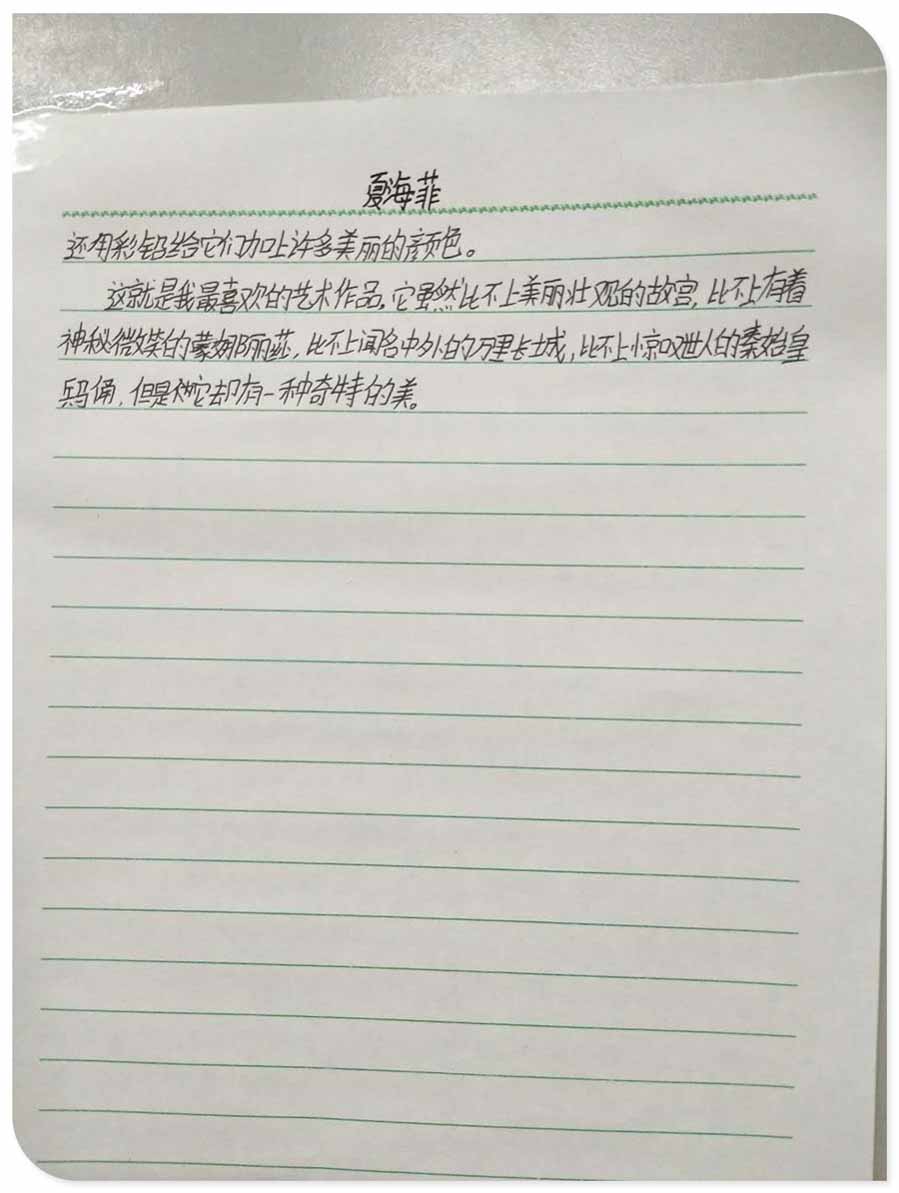 夏海菲
还用彩铅给它们加上许多美丽的颜色。
这就是我最喜欢的艺术作品,它虽然比不上美丽壮观的故宫,比不上有着
神秘微笑的蒙娜丽莎,比不上闻名中外的万里长城,比不上惊叹世人的秦始皇
兵马俑,但是它却有一种奇特的美。